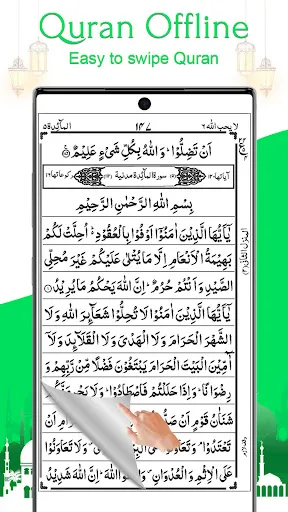 Quran Offline
Easy to swipe Quran
المآئدة ٥
١٤٧
لا يحب الله ٦
اَنْ تَضِلُّوْا ؕ وَاللّٰهُ بِكُلِّ شَیْءٍ عَلِیْمٌ
سورة المآئدة مدنية
بِسْمِ اللّٰهِ الرَّحْمٰنِ الرَّحِیْمِ
یٰۤاَیُّهَا الَّذِیْنَ اٰمَنُوْۤا اَوْفُوْا بِالْعُقُوْدِ ؕ اُحِلَّتْ لَكُمْ
بَهِیْمَةُ الْاَنْعَامِ اِلَّا مَا یُتْلٰی عَلَیْكُمْ غَیْرَ مُحِلِّی
الصَّیْدِ وَ اَنْتُمْ حُرُمٌ ؕ اِنَّ اللّٰهَ یَحْكُمُ مَا یُرِیْدُ
یٰۤاَیُّهَا الَّذِیْنَ اٰمَنُوْا لَا تُحِلُّوْا شَعَآىِٕرَ اللّٰهِ وَ لَا
الشَّهْرَ الْحَرَامَ وَ لَا الْهَدْیَ وَ لَا الْقَلَآىِٕدَ وَ لَاۤ
آٰمِّیْنَ الْبَیْتَ الْحَرَامَ یَبْتَغُوْنَ فَضْلًا مِّنْ رَّبِّهِمْ وَ
رِضْوَانًا ؕ وَ اِذَا حَلَلْتُمْ فَاصْطَادُوْا ؕ وَ لَا یَجْرِمَنَّكُمْ
شَنَاٰنُ قَوْمٍ اَنْ
تَعْتَدُوْا ۘ وَ تَعَاوَنُوْا وَ لَا تَعَاوَنُوْا
عَلَی الْاِثْمِ وَ الْعُدْوَانِ ۪ وَ اللّٰهَ ؕ اِنَّ اللّٰهَ شَدِیْدُ